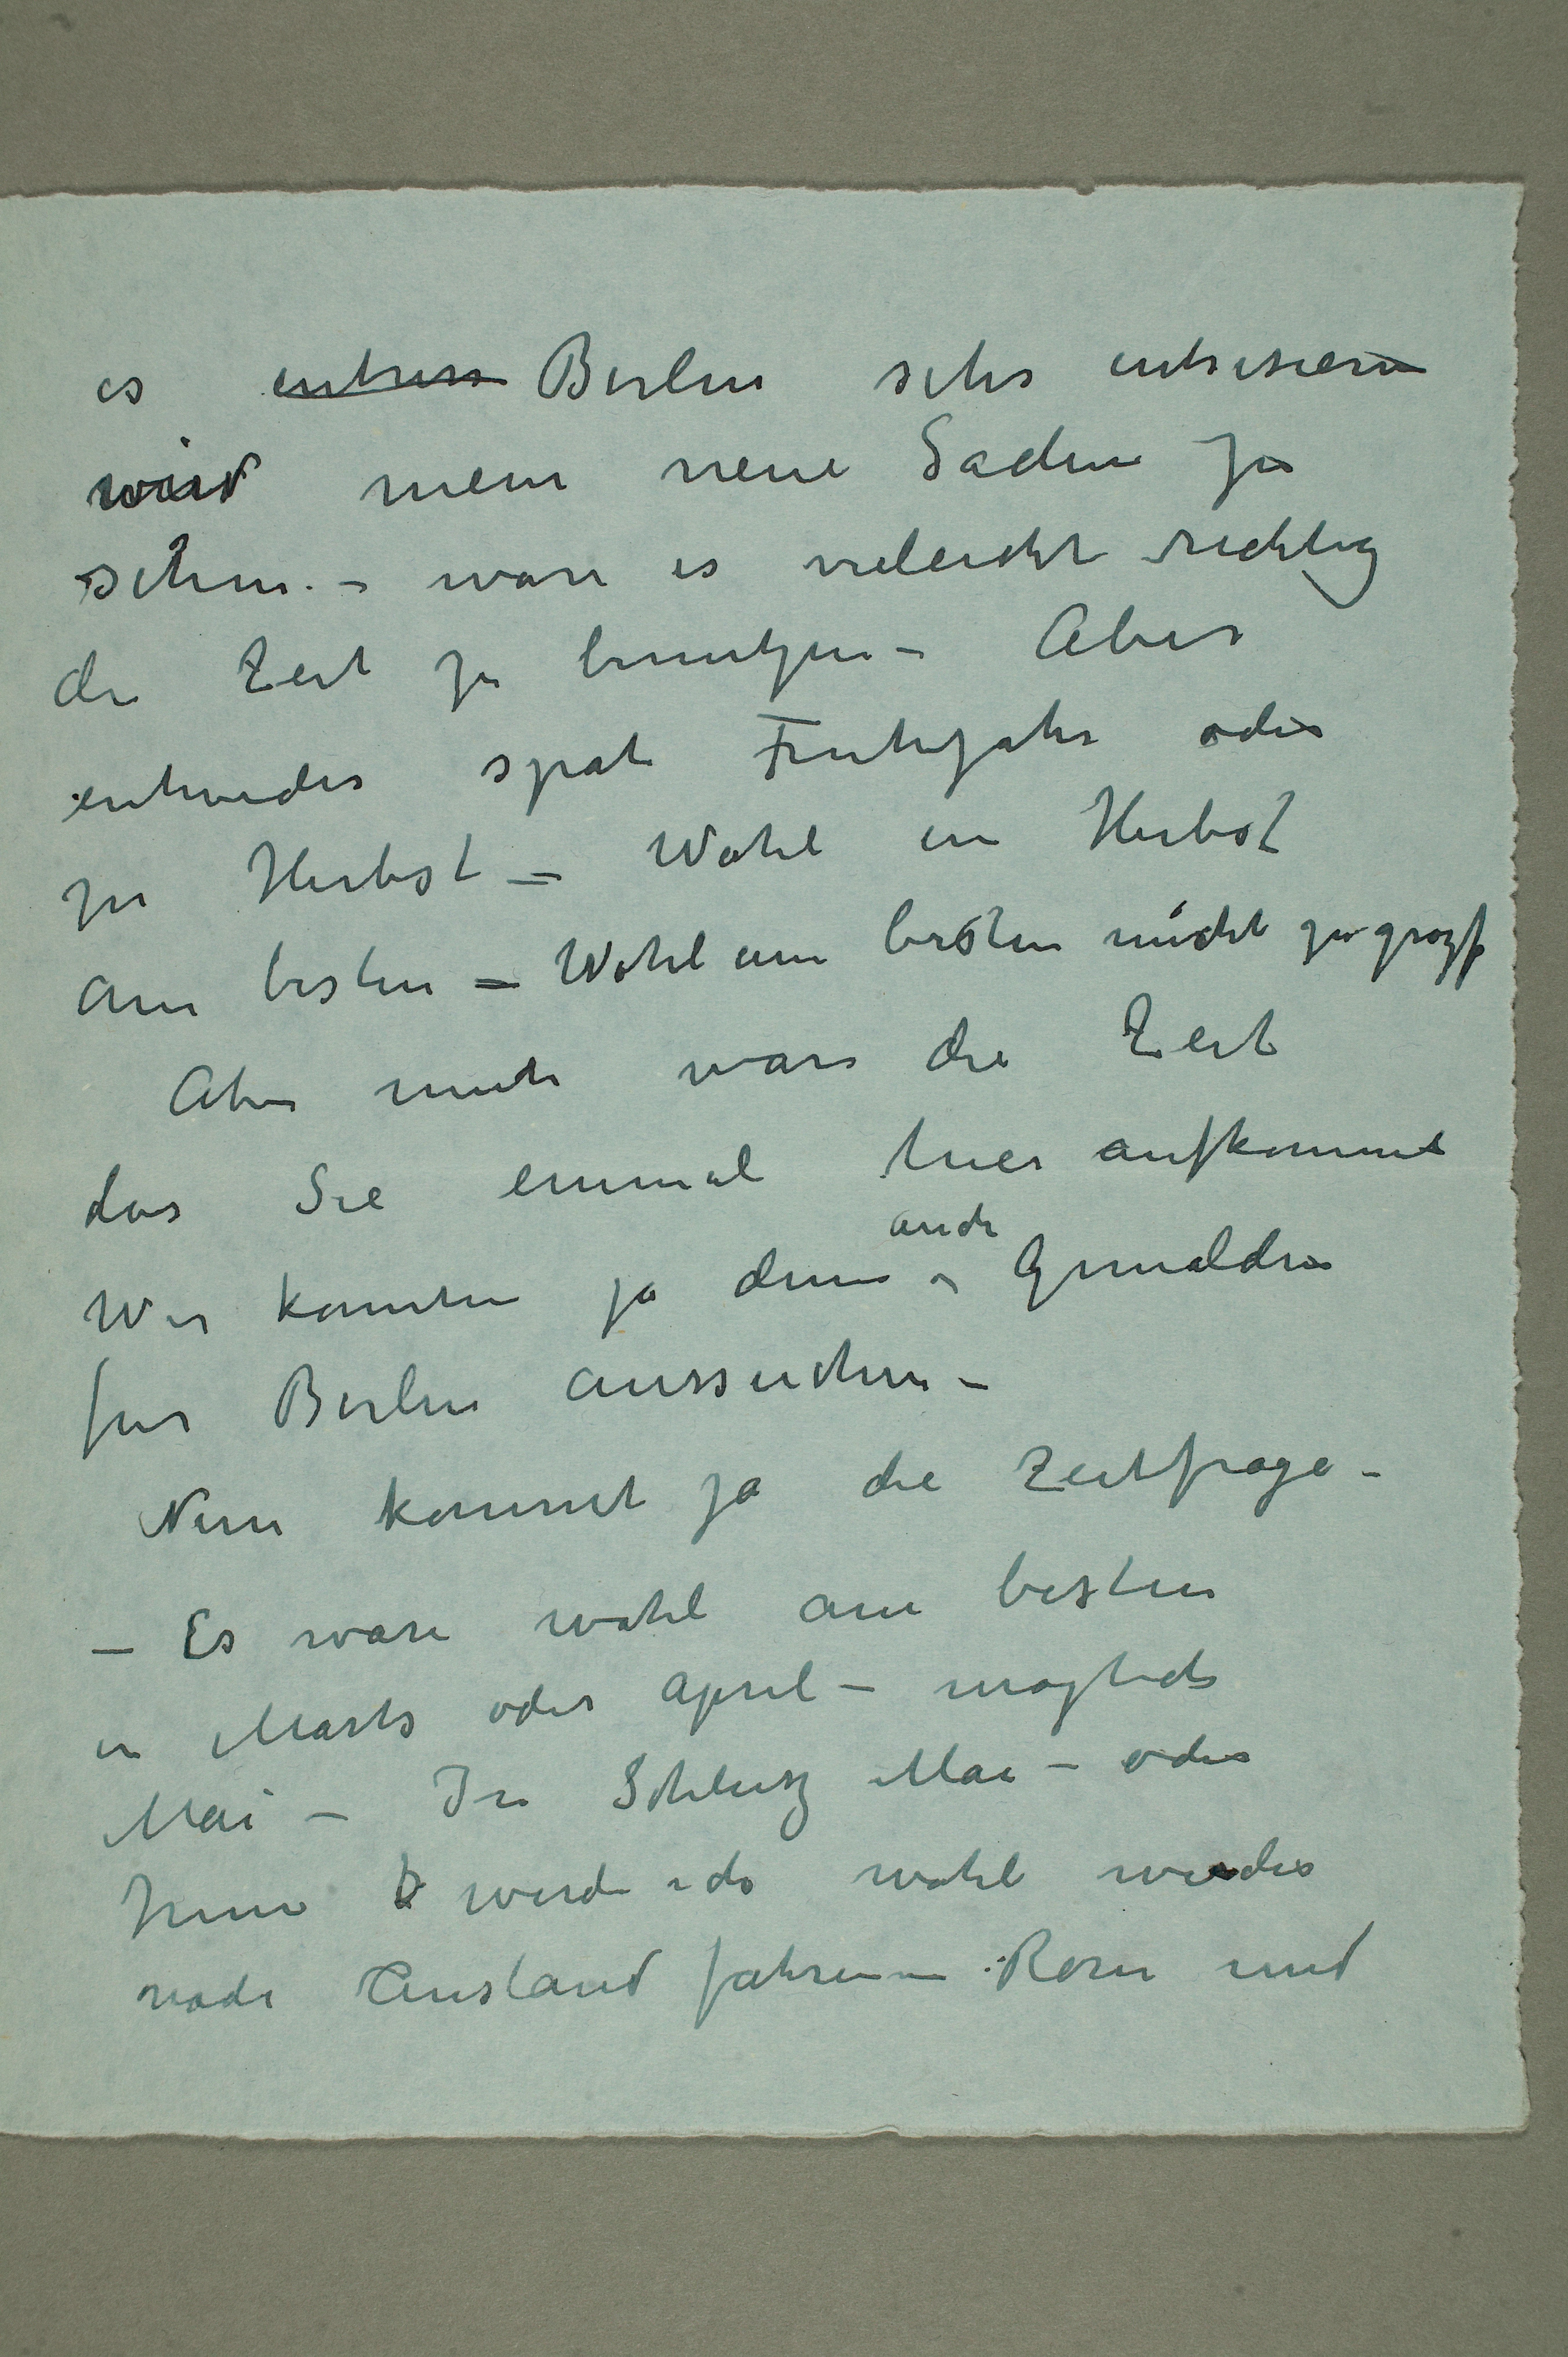 es entress Berlin sehr intresieren
wird mein neue Sachen zu
sehen. – wäre es vieleicht richtig
die Zeit zu benutzen – Aber
entweder spät Frühjahr oder
zu Herbst – Wohl in Herbst
am besten – Wohl am besten nicht zu grozs
Aber nicht wäre die Zeit
das Sie einmal hier aufkommt
Wir konnten ja denn auch Gemälden
fur Berlin aussuchen –
Nun kommt ja die Zeitfrage –
– Es wäre wohl am besten
in Marts oder April – moglich
Mai – In Schlusz Mai – oder
Juni werde ich wohl wieder
nach Ausland fahren – Rom und